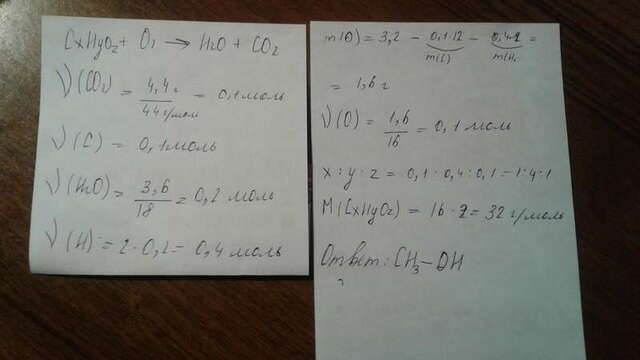 CxHyOz + O₂ → H₂O + CO₂
ν(CO₂) = 4,4 г / 44 г/моль = 0,1 моль
ν(C) = 0,1 моль
ν(H₂O) = 3,6 / 18 = 0,2 моль
ν(H) = 2·0,2 = 0,4 моль
m(O) = 3,2 − 0,1·12 − 0,4·1 =
m(C) m(H)
= 1,6 г
ν(O) = 1,6 / 16 = 0,1 моль
x:y:z = 0,1:0,4:0,1 = 1:4:1
M(CxHyOz) = 16·2 = 32 г/моль
Ответ: CH₃–OH